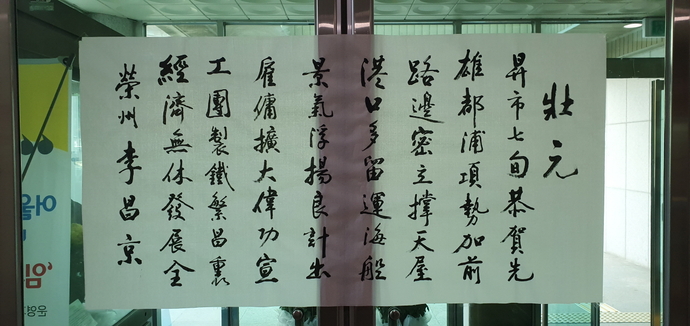 壯元
昇市七旬恭賀先
雄都浦項勢加前
路邊密立撑天屋
港口多留運海船
景氣浮揚良計出
雇傭擴大偉功宣
工團製鐵繁昌裏
經濟無休發展全
榮州 李昌京
어울
'임
운영